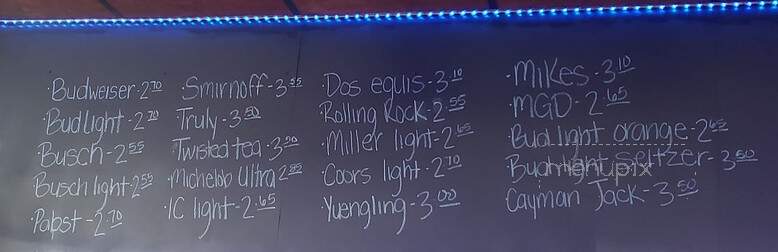 ·Budweiser-2.70
·Bud light-2.70
·Busch-2.55
·Busch light-2.55
·Pabst-2.70
·Smirnoff-3.55
·Truly-3.50
·Twisted tea-3.50
·Michelob Ultra 2.85
·IC light-2.65
·Dos equis-3.10
·Rolling Rock-2.55
·Miller light-2.65
·Coors light-2.70
·Yuengling-3.00
·Mikes-3.10
·MGD-2.65
·Bud light orange-2.65
·Bud light Seltzer-3.50
Cayman Jack-3.50
menupix